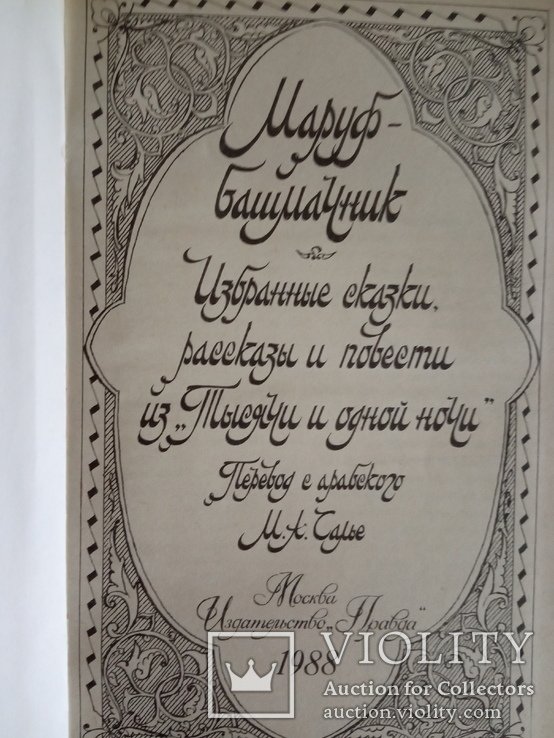 Маруф-
башмачник
Избранные сказки,
рассказы и повести
из „Тысячи и одной ночи“
Перевод с арабского
М.А. Салье
Москва
Издательство „Правда“
1988
VIOLITY
Auction for Collectors
auction.violity.com